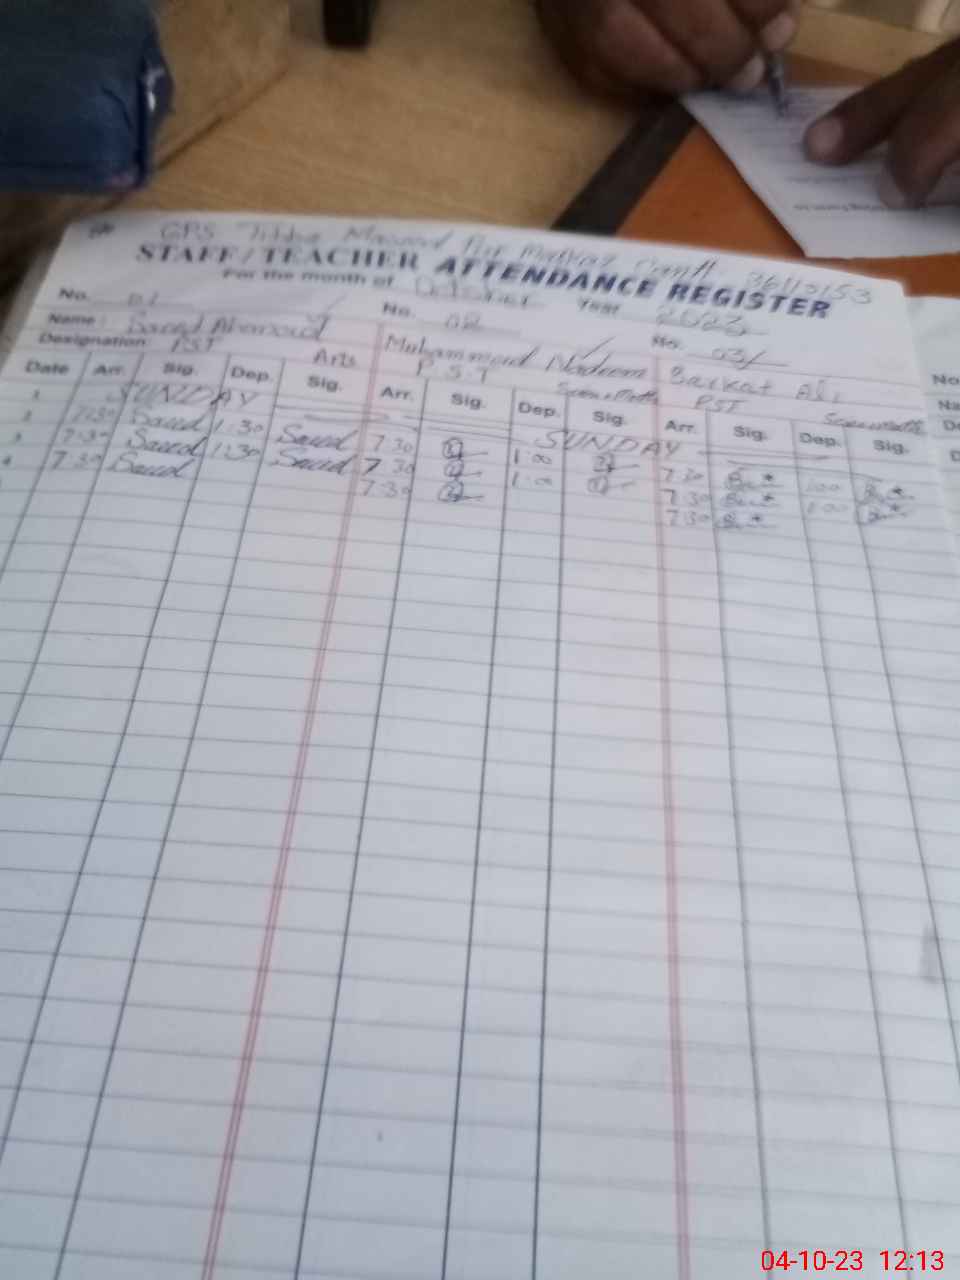 GPS Tibba Masood Pur Markaz Cantt 36110153
STAFF / TEACHER ATTENDANCE REGISTER
For the month of October Year 2023
No. 01 No. 02 No. 03
Name: Saeed Ahmad Muhammad Nadeem Barkat Ali
Designation: PST Arts P.S.T PST
Date Arr. Sig. Dep. Sig. Arr. Sig. Dep. Sig. Arr. Sig. Dep. Sig.
1 SUNDAY SUNDAY
2 7:30 Saeed 1:30 Saeed 7:30 1:00 7:30 1:00
3 7:30 Saeed 1:30 Saeed 7:30 1:00 7:30 1:00
4 7:30 Saeed 7:30 7:30
No
04-10-23 12:13